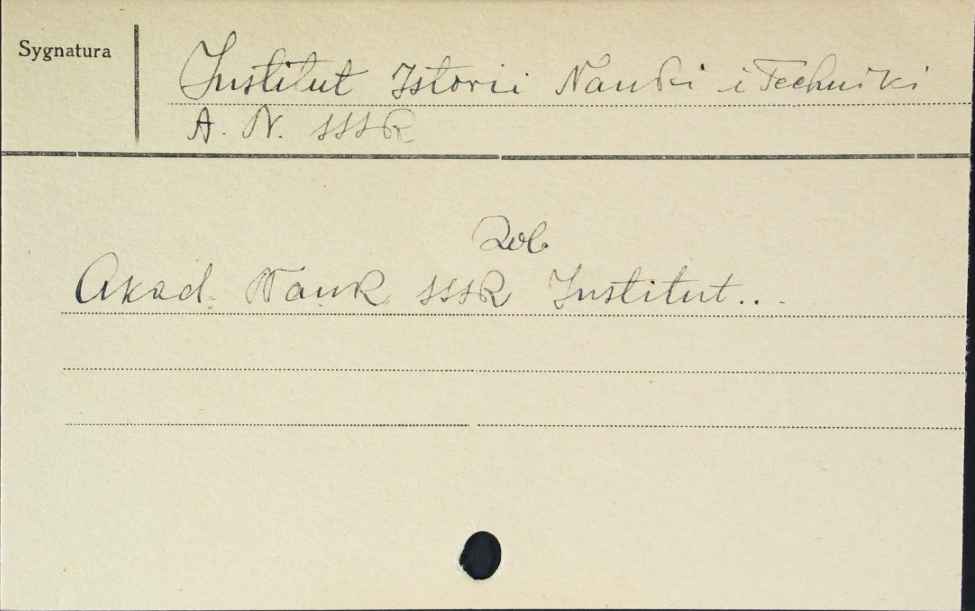 Sygnatura
Institut Istorii Nauki i Techniki
A. N. SSSR
Zob
Akad. Nauk SSSR Institut...